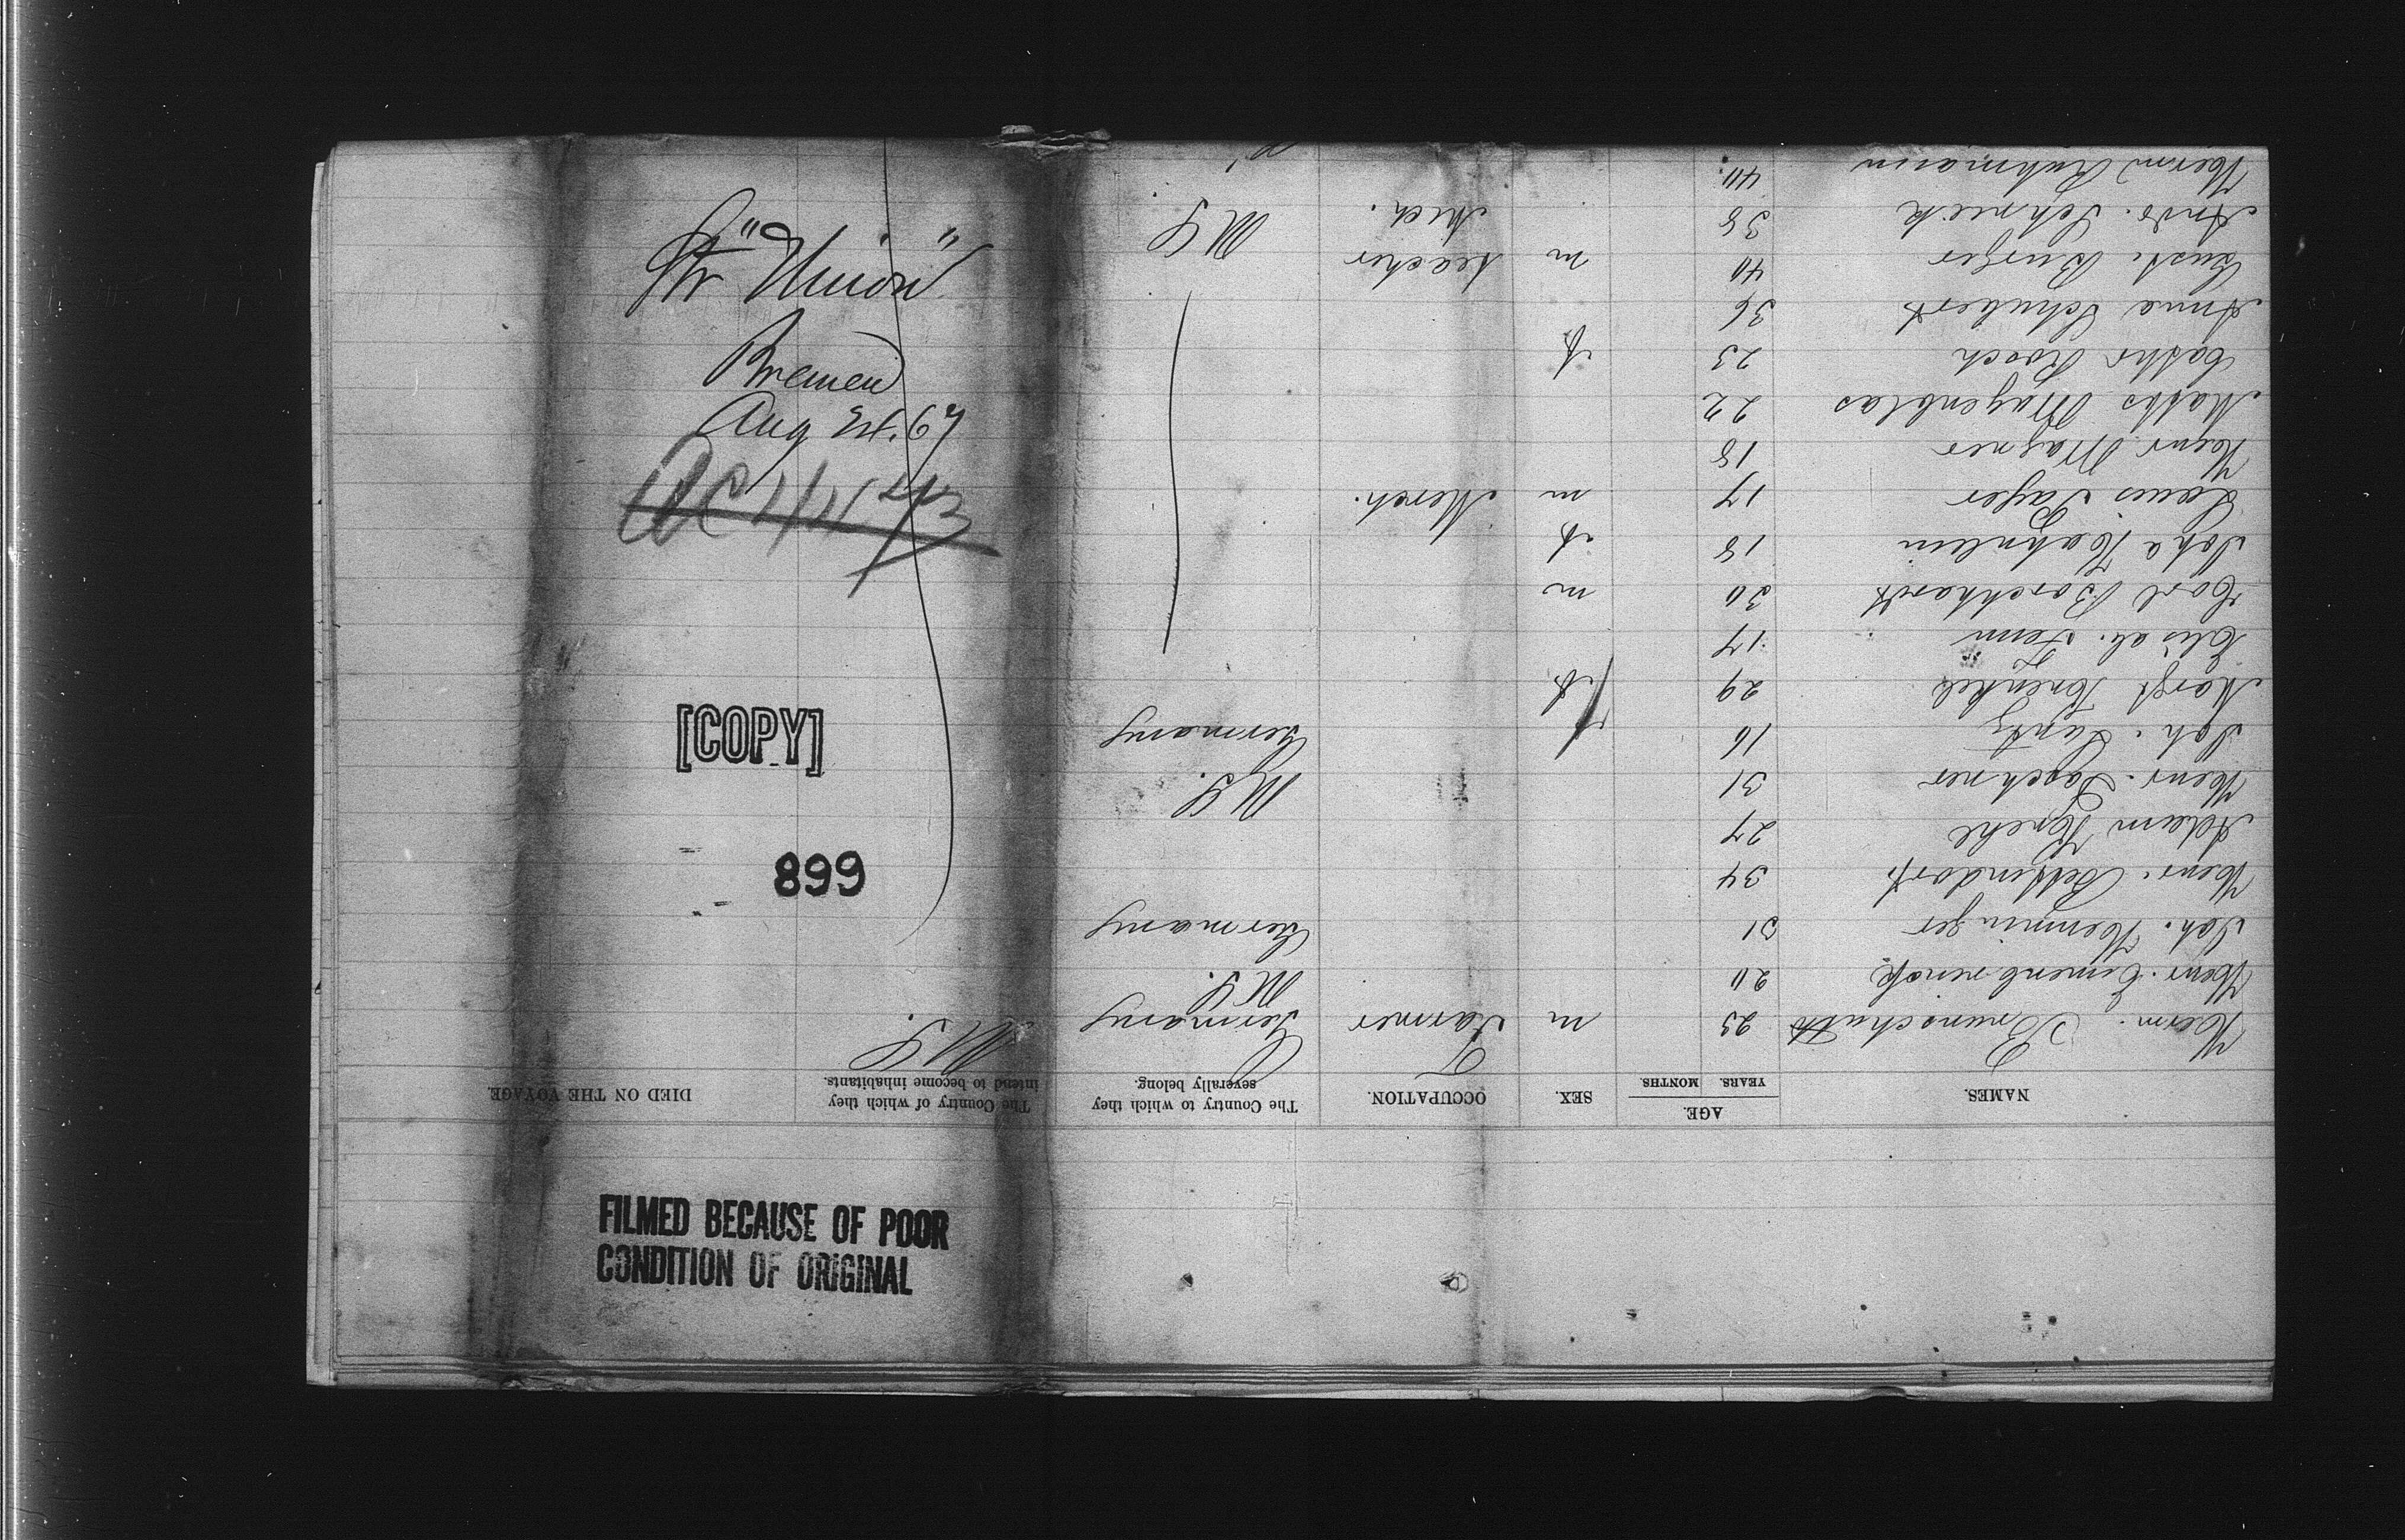 Str "Union"
Bremen
Aug 24. 67
[COPY]
899
FILMED BECAUSE OF POOR
CONDITION OF ORIGINAL
NAMES. AGE. YEARS. MONTHS. SEX. OCCUPATION. The Country to which they severally belong. The Country of which they intend to become inhabitants. DIED ON THE VOYAGE.
Herm. 23 m Farmer Germany U.S.
Henr. 20 U.S.
Joh. Hemminger 31 Germany
Henr. 34
Adam Krehl 27
Henr. Laechner 31 U.S.
Joh. 16 Germany
Margt Krenkel 29 f
Elisab. Fenn 17
Carl Borchhardt 30 m
Soph Haehnlein 18 f
Louis Payer 17 m Merch.
Henr Magner 18
Maths Magenblas 22
Cathr Koch 23 f
Anna Schubert 36
Gust. Burger 40 m teacher
Andr. Schneck 38 Mch. U.S.
Herm Ruhmann 40